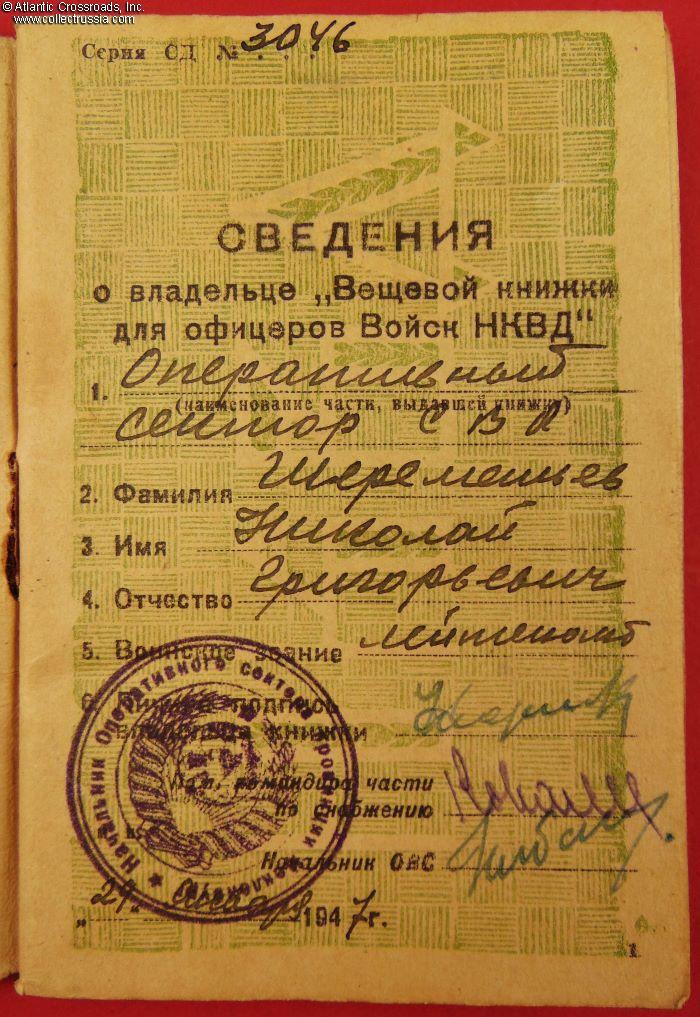 © Atlantic Crossroads, Inc.
www.collectrussia.com
Серия СД № 3046
СВЕДЕНИЯ
о владельце „Вещевой книжки
для офицеров Войск НКВД“
1. Оперативный
(наименование части, выдавшей книжку)
сектор СВА
2. Фамилия Шереметьев
3. Имя Николай
4. Отчество Григорьевич
5. Воинское звание лейтенант
6. Личная подпись
владельца книжки
Пом. командира части
по снабжению
Начальник ОВС
Начальник Оперативного сектора провинции
„29“ января 1947 г.
1